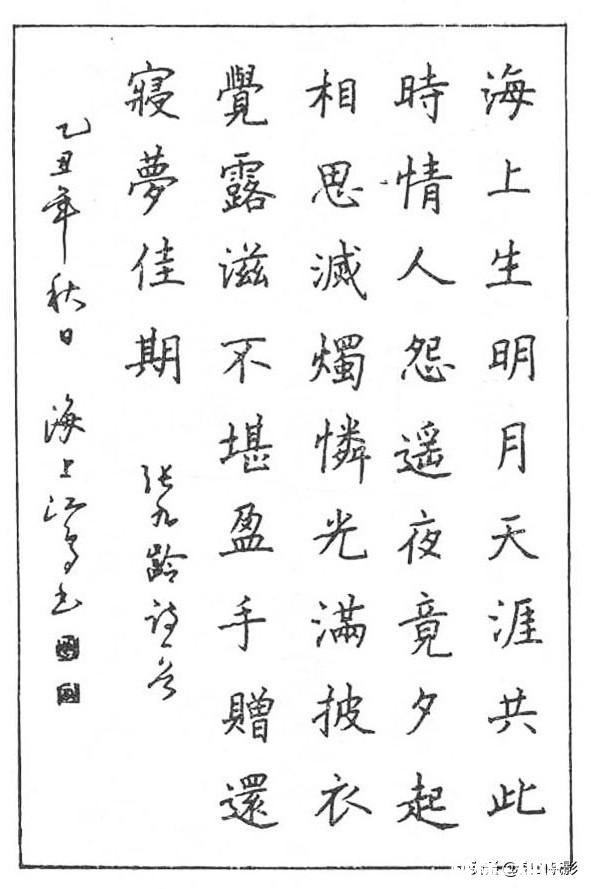 海上生明月天涯共此
時情人怨遥夜竟夕起
相思滅燭憐光滿披衣
覺露滋不堪盈手贈還
寢夢佳期 张九齡詩一首
乙丑年秋日 海上江鸟书